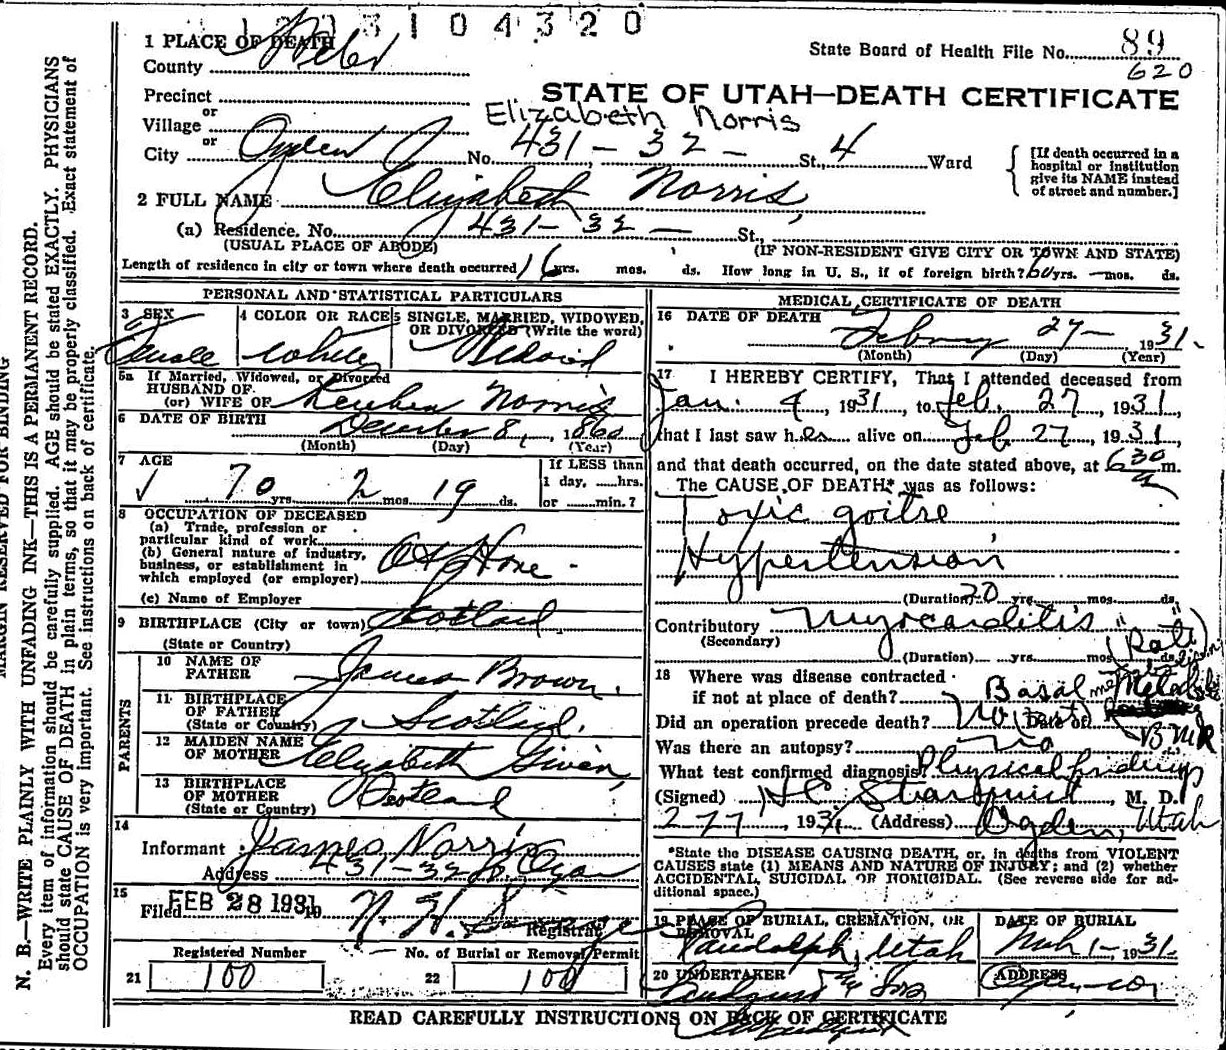 1 PLACE OF DEATH
State Board of Health File No. 89
620
County Weber
STATE OF UTAH—DEATH CERTIFICATE
Precinct
or
Elizabeth Norris
Village
or
City Ogden No. 431-32- St., 4 Ward
[If death occurred in a hospital or institution give its NAME instead of street and number.]
2 FULL NAME Elizabeth Norris
(a) Residence. No. 431-32- St.,
(USUAL PLACE OF ABODE) (IF NON-RESIDENT GIVE CITY OR TOWN AND STATE)
Length of residence in city or town where death occurred 16 yrs. mos. ds. How long in U. S., if of foreign birth? 60 yrs. — mos. ds.
PERSONAL AND STATISTICAL PARTICULARS
3 SEX
Female
4 COLOR OR RACE
White
5 SINGLE, MARRIED, WIDOWED, OR DIVORCED (Write the word)
Widowed
5a If Married, Widowed, or Divorced
HUSBAND OF
(or) WIFE OF Reuben Norris
6 DATE OF BIRTH December 8, 1860
(Month) (Day) (Year)
7 AGE
70 yrs. 2 mos. 19 ds.
If LESS than
1 day, ......hrs.
or ......min.?
8 OCCUPATION OF DECEASED
(a) Trade, profession or
particular kind of work
(b) General nature of industry,
business, or establishment in
which employed (or employer)
At Home
(c) Name of Employer
9 BIRTHPLACE (City or town) Scotland
(State or Country)
PARENTS
10 NAME OF
FATHER James Brown.
11 BIRTHPLACE
OF FATHER Scotland,
(State or Country)
12 MAIDEN NAME
OF MOTHER Elizabeth Given,
13 BIRTHPLACE
OF MOTHER Scotland
(State or Country)
14
Informant James Norris
Address 431-32 St. Ogden
15
Filed FEB 28 1931 19 N. H. Savage
Registrar
Registered Number
21 100
No. of Burial or Removal Permit
22 100
MEDICAL CERTIFICATE OF DEATH
16 DATE OF DEATH
February 27- 1931.
(Month) (Day) (Year)
17 I HEREBY CERTIFY, That I attended deceased from
Jan. 4, 1931, to Feb. 27, 1931,
that I last saw her alive on Feb 27, 1931,
and that death occurred, on the date stated above, at 630 a m.
The CAUSE OF DEATH* was as follows:
Toxic goitre
Hypertension
(Duration) 20 yrs. mos. ds.
Contributory Myocarditis
(Secondary)
(Duration) yrs. mos. ds.
18 Where was disease contracted
if not at place of death?
Basal
Did an operation precede death? No Date of
BMR
Was there an autopsy? No
What test confirmed diagnosis? Physical findings
(Signed) , M. D.
2 27, 1931 (Address) Ogden, Utah
*State the DISEASE CAUSING DEATH, or, in deaths from VIOLENT
CAUSES state (1) MEANS AND NATURE OF INJURY; and (2) whether
ACCIDENTAL, SUICIDAL OR HOMICIDAL. (See reverse side for ad-
ditional space.)
19 PLACE OF BURIAL, CREMATION, OR
REMOVAL
Randolph, Utah
DATE OF BURIAL
Mch 1- 1931.
20 UNDERTAKER
ADDRESS
READ CAREFULLY INSTRUCTIONS ON BACK OF CERTIFICATE
MARGIN RESERVED FOR BINDING
N. B.—WRITE PLAINLY WITH UNFADING INK—THIS IS A PERMANENT RECORD.
Every item of information should be carefully supplied. AGE should be stated EXACTLY. PHYSICIANS
should state CAUSE OF DEATH in plain terms, so that it may be properly classified. Exact statement of
OCCUPATION is very important. See instructions on back of certificate.